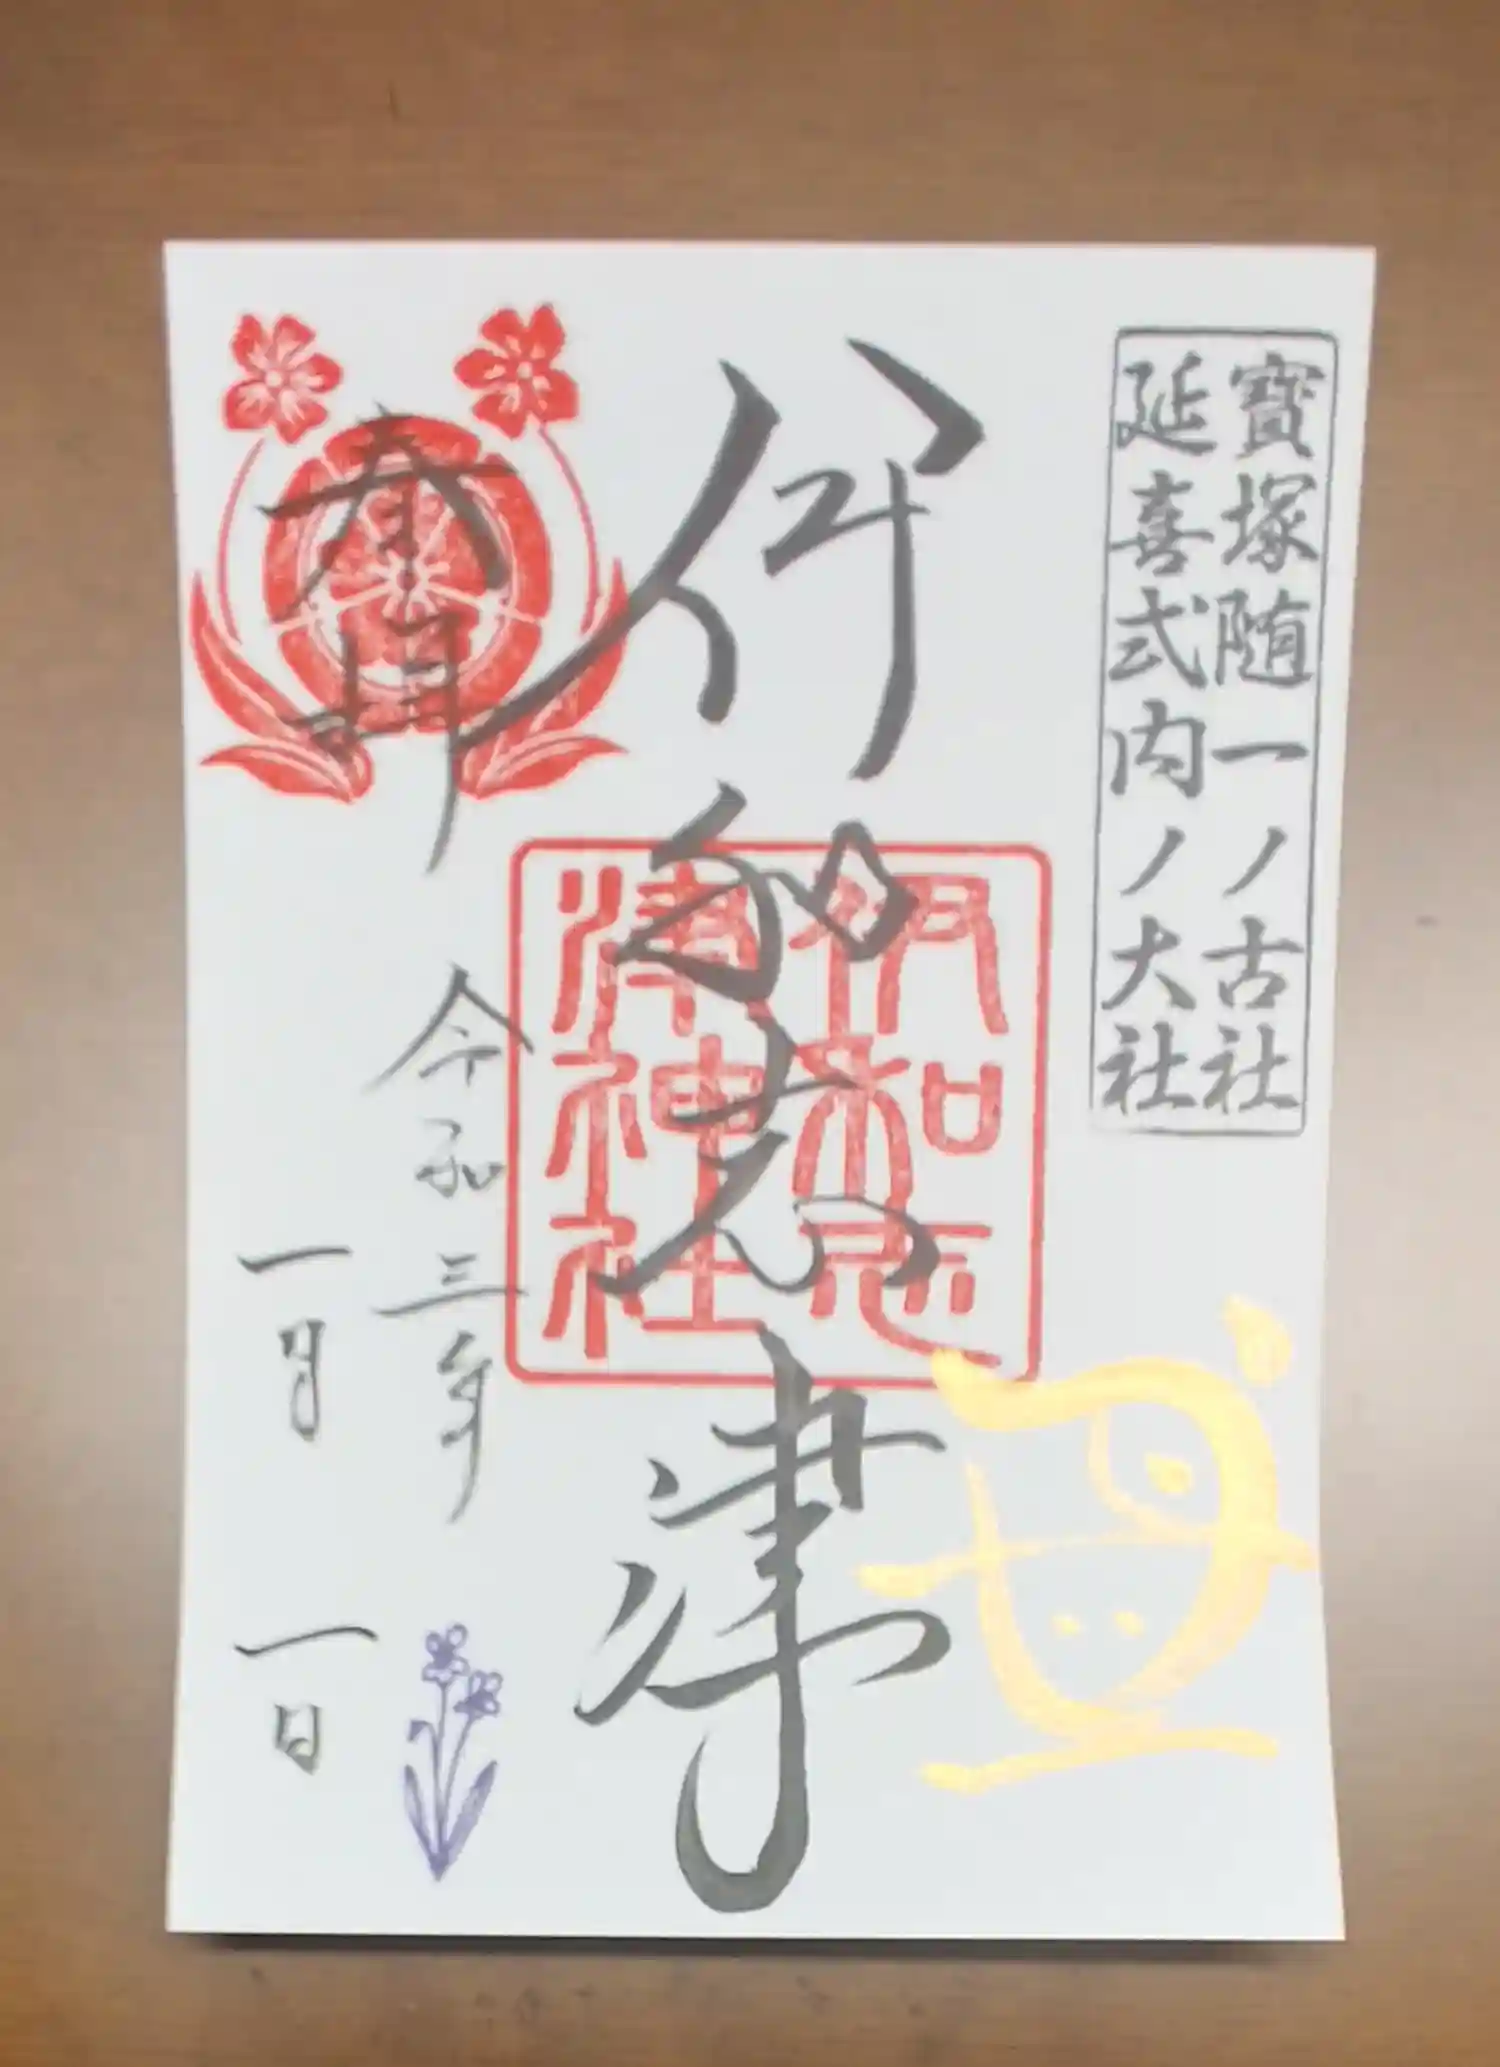 寶塚随一ノ古社
延喜式内ノ大社
伊和志津
伊和志
津神社
奉拝
令和三年
一月一日
丑